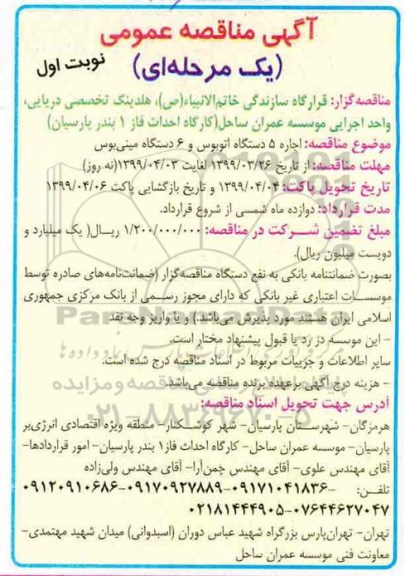 آگهی مناقصه عمومی
(یک مرحله‌ای)
نوبت اول
مناقصه‌گزار: قرارگاه سازندگی خاتم‌الانبیاء(ص)، هلدینگ تخصصی دریایی،
واحد اجرایی موسسه عمران ساحل(کارگاه احداث فاز ۱ بندر پارسیان)
موضوع مناقصه: اجاره ۵ دستگاه اتوبوس و ۶ دستگاه مینی‌بوس
مهلت مناقصه: از تاریخ ۱۳۹۹/۰۳/۲۶ لغایت ۱۳۹۹/۰۴/۰۳(نه روز)
تاریخ تحویل پاکت: ۱۳۹۹/۰۴/۰۴ و تاریخ بازگشایی پاکت ۱۳۹۹/۰۴/۰۶
مدت قرارداد: دوازده ماه شمسی از شروع قرارداد.
مبلغ تضمین شرکت در مناقصه: ۱/۲۰۰/۰۰۰/۰۰۰ ریال( یک میلیارد و
دویست میلیون ریال).
بصورت ضمانتنامه بانکی به نفع دستگاه مناقصه‌گزار (ضمانت‌نامه‌های صادره توسط
موسسات اعتباری غیر بانکی که دارای مجوز رسمی از بانک مرکزی جمهوری
اسلامی ایران هستند مورد پذیرش می‌باشد.) و یا واریز وجه نقد
- این موسسه در رد یا قبول پیشنهاد مختار است.
سایر اطلاعات و جزییات مربوط در اسناد مناقصه درج شده است.
- هزینه درج آگهی برعهده برنده مناقصه می‌باشد.
۰۲۱-۸۸۳۴۹۶۷۰-۵
آدرس جهت تحویل اسناد مناقصه:
هرمزگان- شهرستان پارسیان- شهر کوشکنار- منطقه ویژه اقتصادی انرژی‌بر
پارسیان- موسسه عمران ساحل- کارگاه احداث فاز۱ بندر پارسیان- امور قراردادها-
آقای مهندس علوی- آقای مهندس چمن‌آرا- آقای مهندس ولی‌زاده
تلفن: ۰۹۱۷۱۰۴۱۸۳۶-۰۹۱۷۰۹۲۷۸۸۹-۰۹۱۲۰۹۱۰۶۸۶-
۰۷۶۴۴۶۲۷۰۴۷-۰۲۱۸۱۴۴۴۹۰۵
تهران- تهران‌پارس بزرگراه شهید عباس دوران (استیدوانی) میدان شهید مهتمدی-
معاونت فنی موسسه عمران ساحل